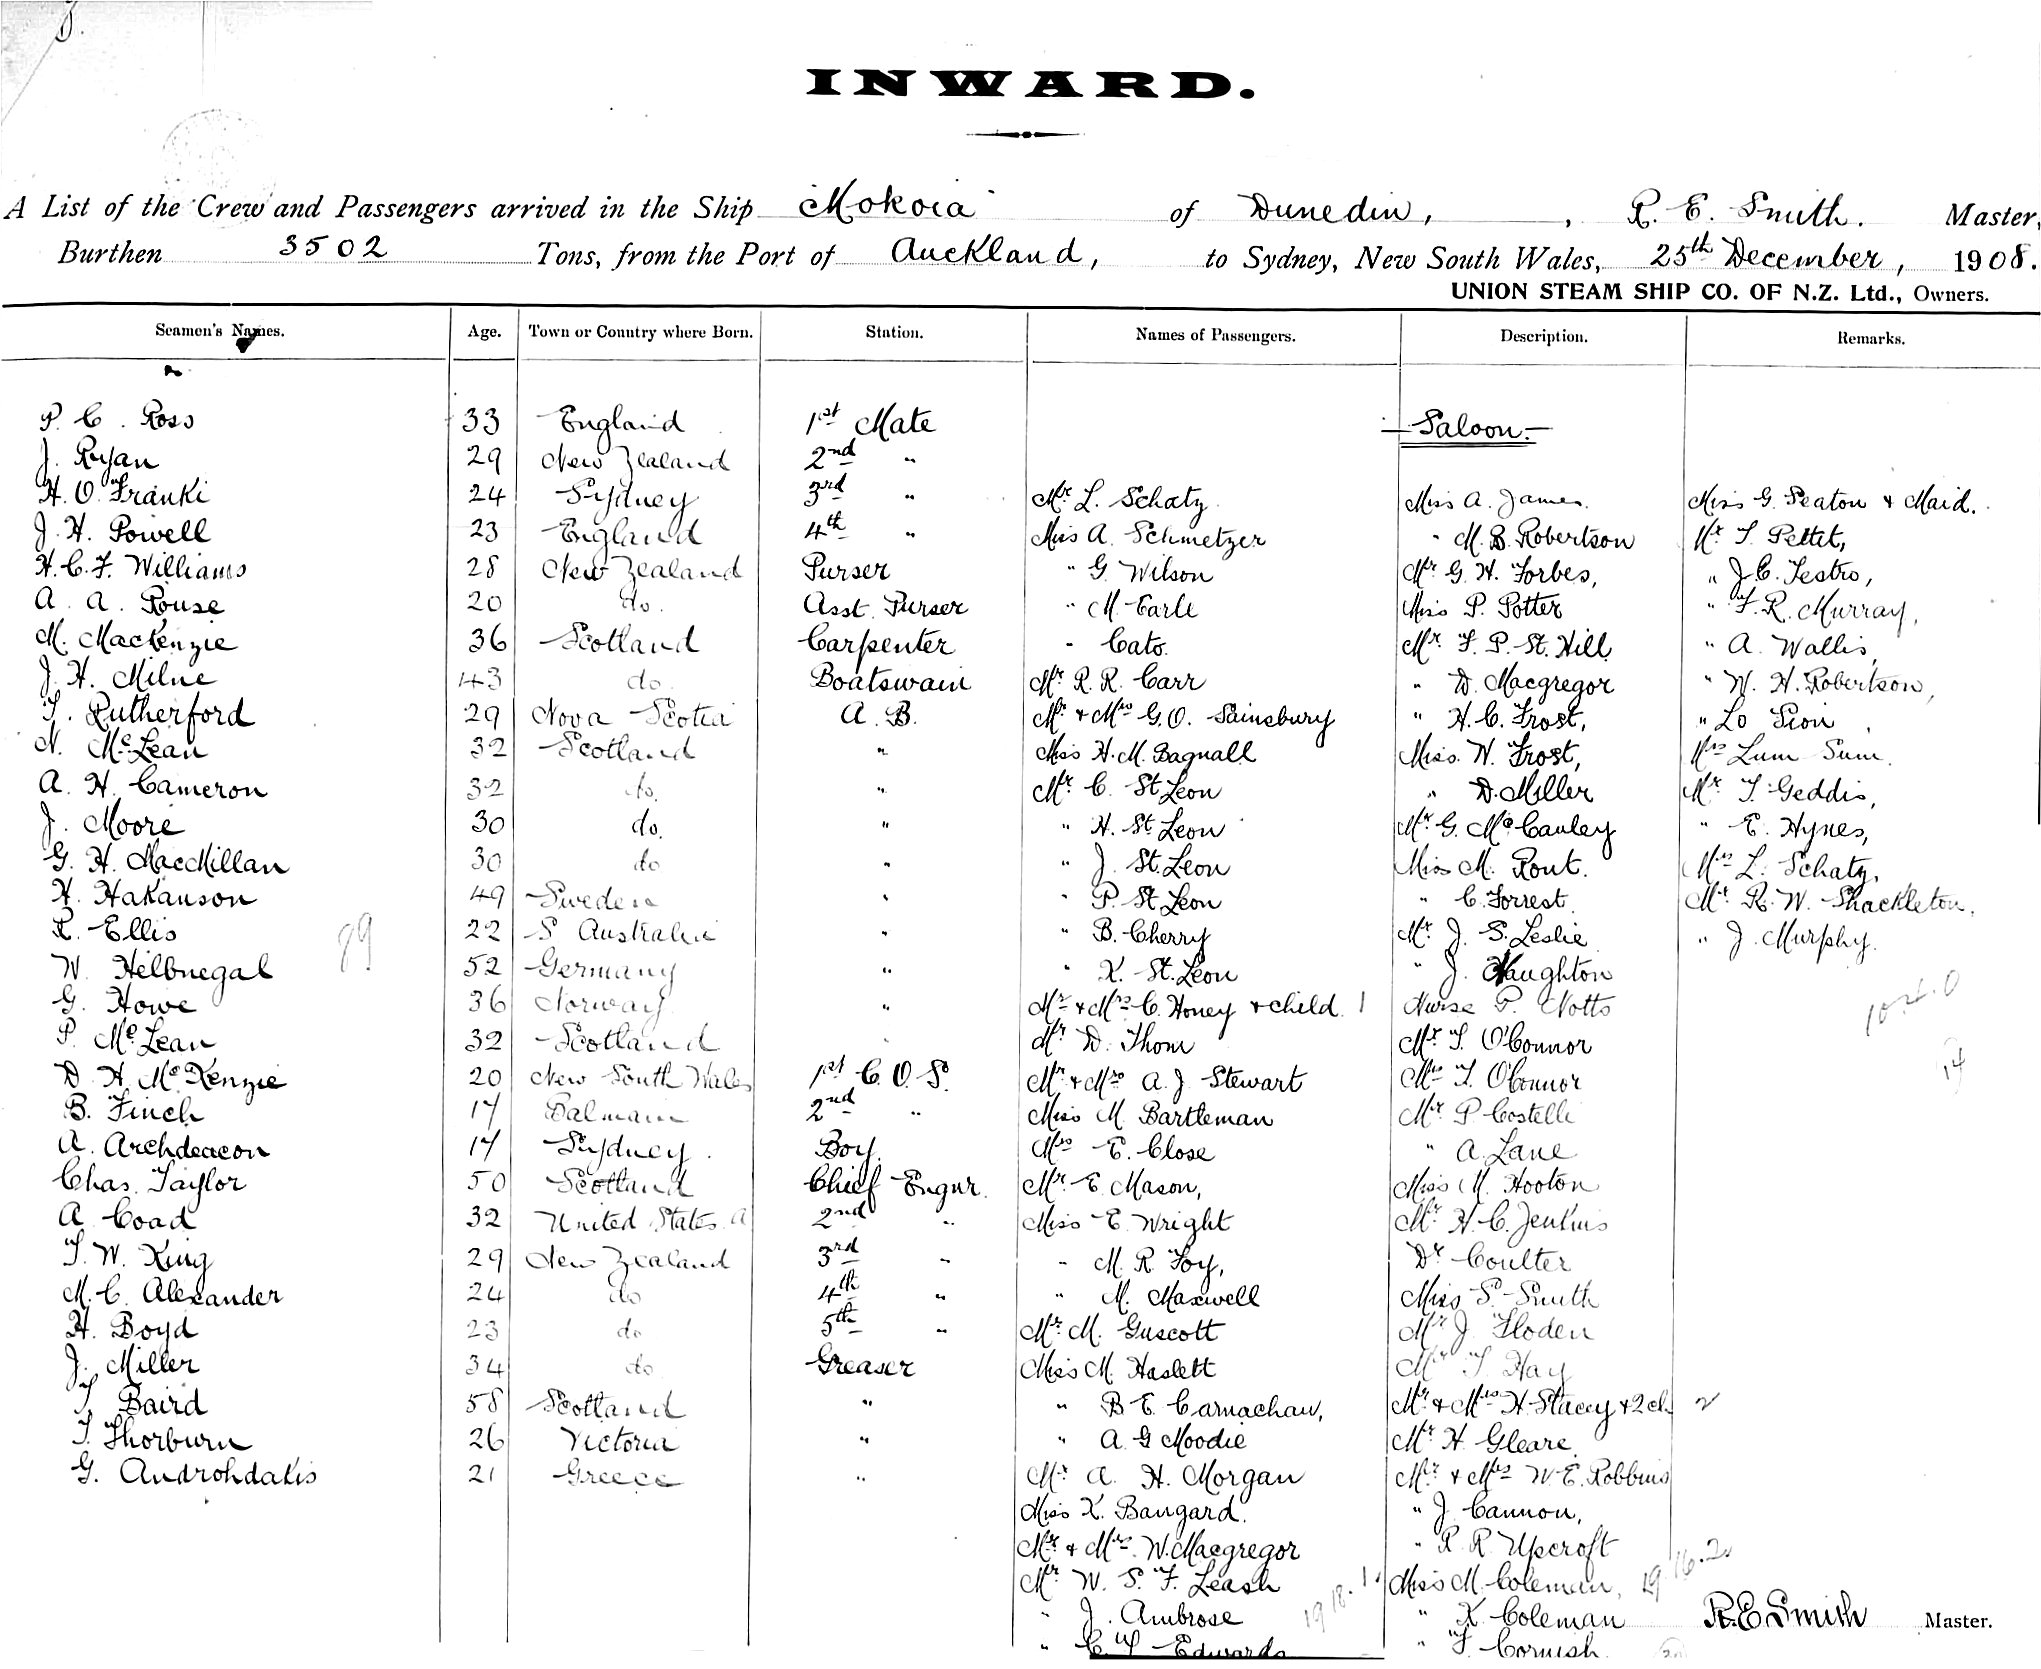 INWARD.
A List of the Crew and Passengers arrived in the Ship Mokoia of Dunedin, , R. E. Smith. Master,
Burthen 3502 Tons, from the Port of Auckland, to Sydney, New South Wales, 25th December, 1908.
UNION STEAM SHIP CO. OF N.Z. Ltd., Owners.
Seamen's Names. Age. Town or Country where Born. Station. Names of Passengers. Description. Remarks.
P. C. Ross 33 England 1st Mate
Saloon.
J. Ryan 29 New Zealand 2nd "
H. O. Franki 24 Sydney 3rd " Mr L. Schatz Miss A. James. Miss G. Seaton & Maid.
J. H. Powell 23 England 4th " Miss A. Schmetzer " M. B. Robertson Mr T. Pettet,
H. C. F. Williams 28 New Zealand Purser " G. Wilson Mr G. H. Forbes, " J C. Testro,
A. A. Rouse 20 do. Asst. Purser " M. Earle Miss P. Potter " F. R. Murray,
M. MacKenzie 36 Scotland Carpenter " Cato. Mr F. P. St. Hill " A. Wallis,
J. H. Milne 43 do. Boatswain Mr R. R. Carr " D. Macgregor " W. H. Robertson,
T. Rutherford 29 Nova Scotia A. B. Mr & Mrs G. O. Sainsbury " H. C. Frost, " Lo Sion
N. McLean 32 Scotland " Miss H. M. Bagnall Miss. W. Frost, Mrs Lum Sum.
A. H. Cameron 32 do. " Mr. C. St Leon " D. Miller Mr T. Geddis,
J. Moore 30 do. " " H. St Leon Mr G. McCauley " E. Hynes,
G. H. MacMillan 30 do " " J. St. Leon Miss M. Rout. Mrs L. Schatz,
H. Hakanson 49 Sweden " " P. St Leon " C. Forrest Mr. R. W. Shackleton,
R. Ellis 89 22 S Australia " " B. Cherry Mr. J. S. Leslie " J. Murphy.
W. Helbnegal 52 Germany " " K. St. Leon " J. Naughton
G. Howe 36 Norway " Mr & Mrs C. Honey & child. 1 Nurse P. Notts
P. McLean 32 Scotland Mr D. Thom Mr. T. O'Connor
D. H. McKenzie 20 New South Wales 1st C. O. S. Mr & Mrs A. J. Stewart Mrs T. O'Connor
B. Finch 17 Balmain 2nd " Miss M. Bartleman Mr P. Costelli
A. Archdeacon 17 Sydney. Boy. Mrs E. Close " A. Lane
Chas. Taylor 50 Scotland Chief Engnr. Mr. E. Mason, Miss M. Hooton
A. Coad 32 United States A 2nd " Miss E. Wright Mr. H. C. Jenkins
T. W. King 29 New Zealand 3rd " " M. R. Foy, Dr Coulter
M. C. Alexander 24 do 4th " " M. Maxwell Miss S. Smith
H. Boyd 23 do 5th " Mr. M. Guscott Mr J. Hoden
J. Miller 34 do Greaser Miss M. Haslett Mr T. Hay
T. Baird 58 Scotland " " B. E. Carnachan, Mr & Mrs H. Stacey & 2 ch 2
T. Thorburn 26 Victoria " " A. G Moodie Mr H. Gleare
G. Androhdakis 21 Greece " Mr A. H. Morgan Mr & Mrs W. E. Robbins
Miss K. Bangard. " J. Cannon,
Mr & Mrs. W. Macgregor " R. R. Upcroft
Mr W. S. F. Leash 19 18. 1. Miss M. Coleman, 19 16. 2.
" J. Ambrose " K. Coleman R. E. Smith Master.
" C. T Edwards " F. Cornish.